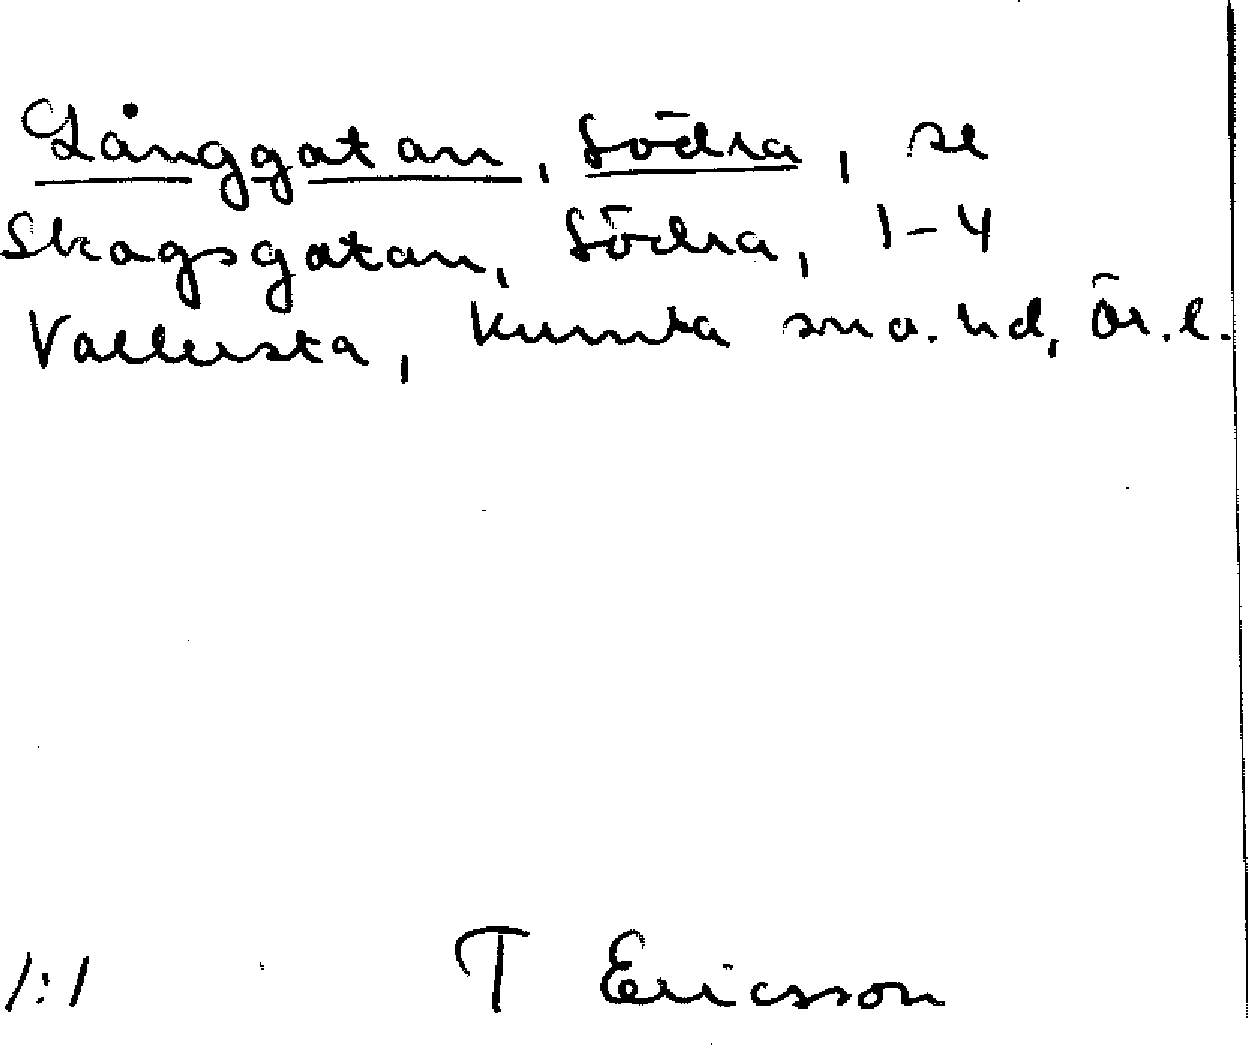 Långgatan, Södra, se
Skogsgatan, Södra, 1-4
Vallersta, Kumla sn o. hd, Ör. l.
1:1 T Ericsson